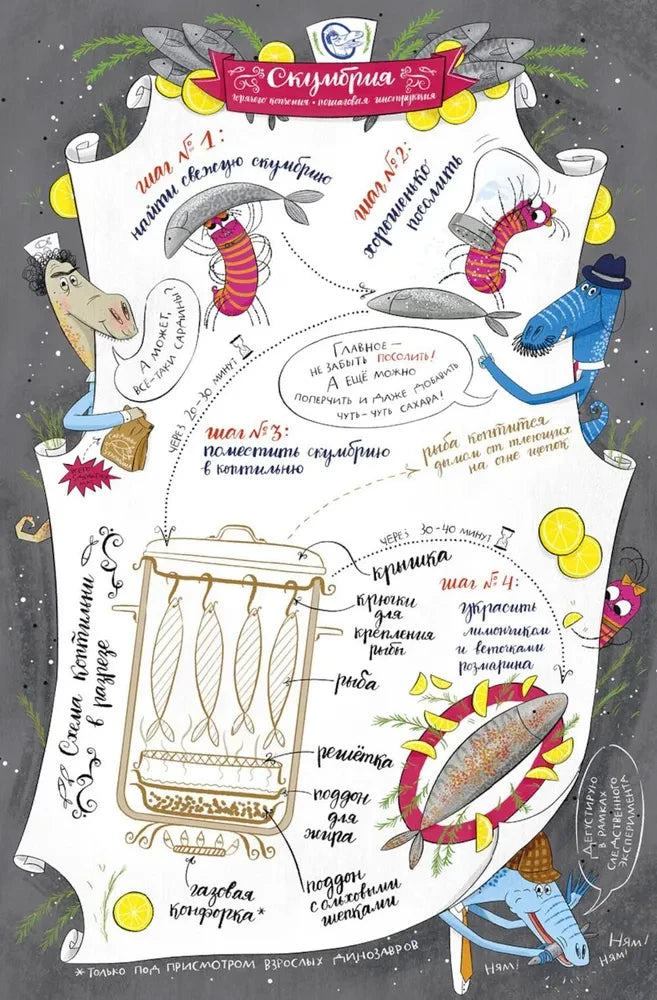 Скумбрия
горячего копчения • пошаговая инструкция
шаг №1:
найти свежую скумбрию
шаг №2:
хорошенько
посолить
А может,
всё-таки сардины?
Главное –
не забыть посолить!
А ещё можно
поперчить и даже добавить
чуть-чуть сахара!
через 20-30 минут
шаг №3:
поместить скумбрию
в коптильню
рыба коптится
дымом от тлеющих
на огне щепок
Схема коптильни
в разрезе
крышка
крючки
для
крепления
рыбы
рыба
решётка
поддон
для
жира
поддон
с ольховыми
щепками
газовая
конфорка*
через 30-40 минут
шаг №4:
украсить
лимончиком
и веточками
розмарина
Дегустирую
в рамках
следственного
эксперимента
Ням!
Ням!
Ням!
*только под присмотром взрослых динозавров